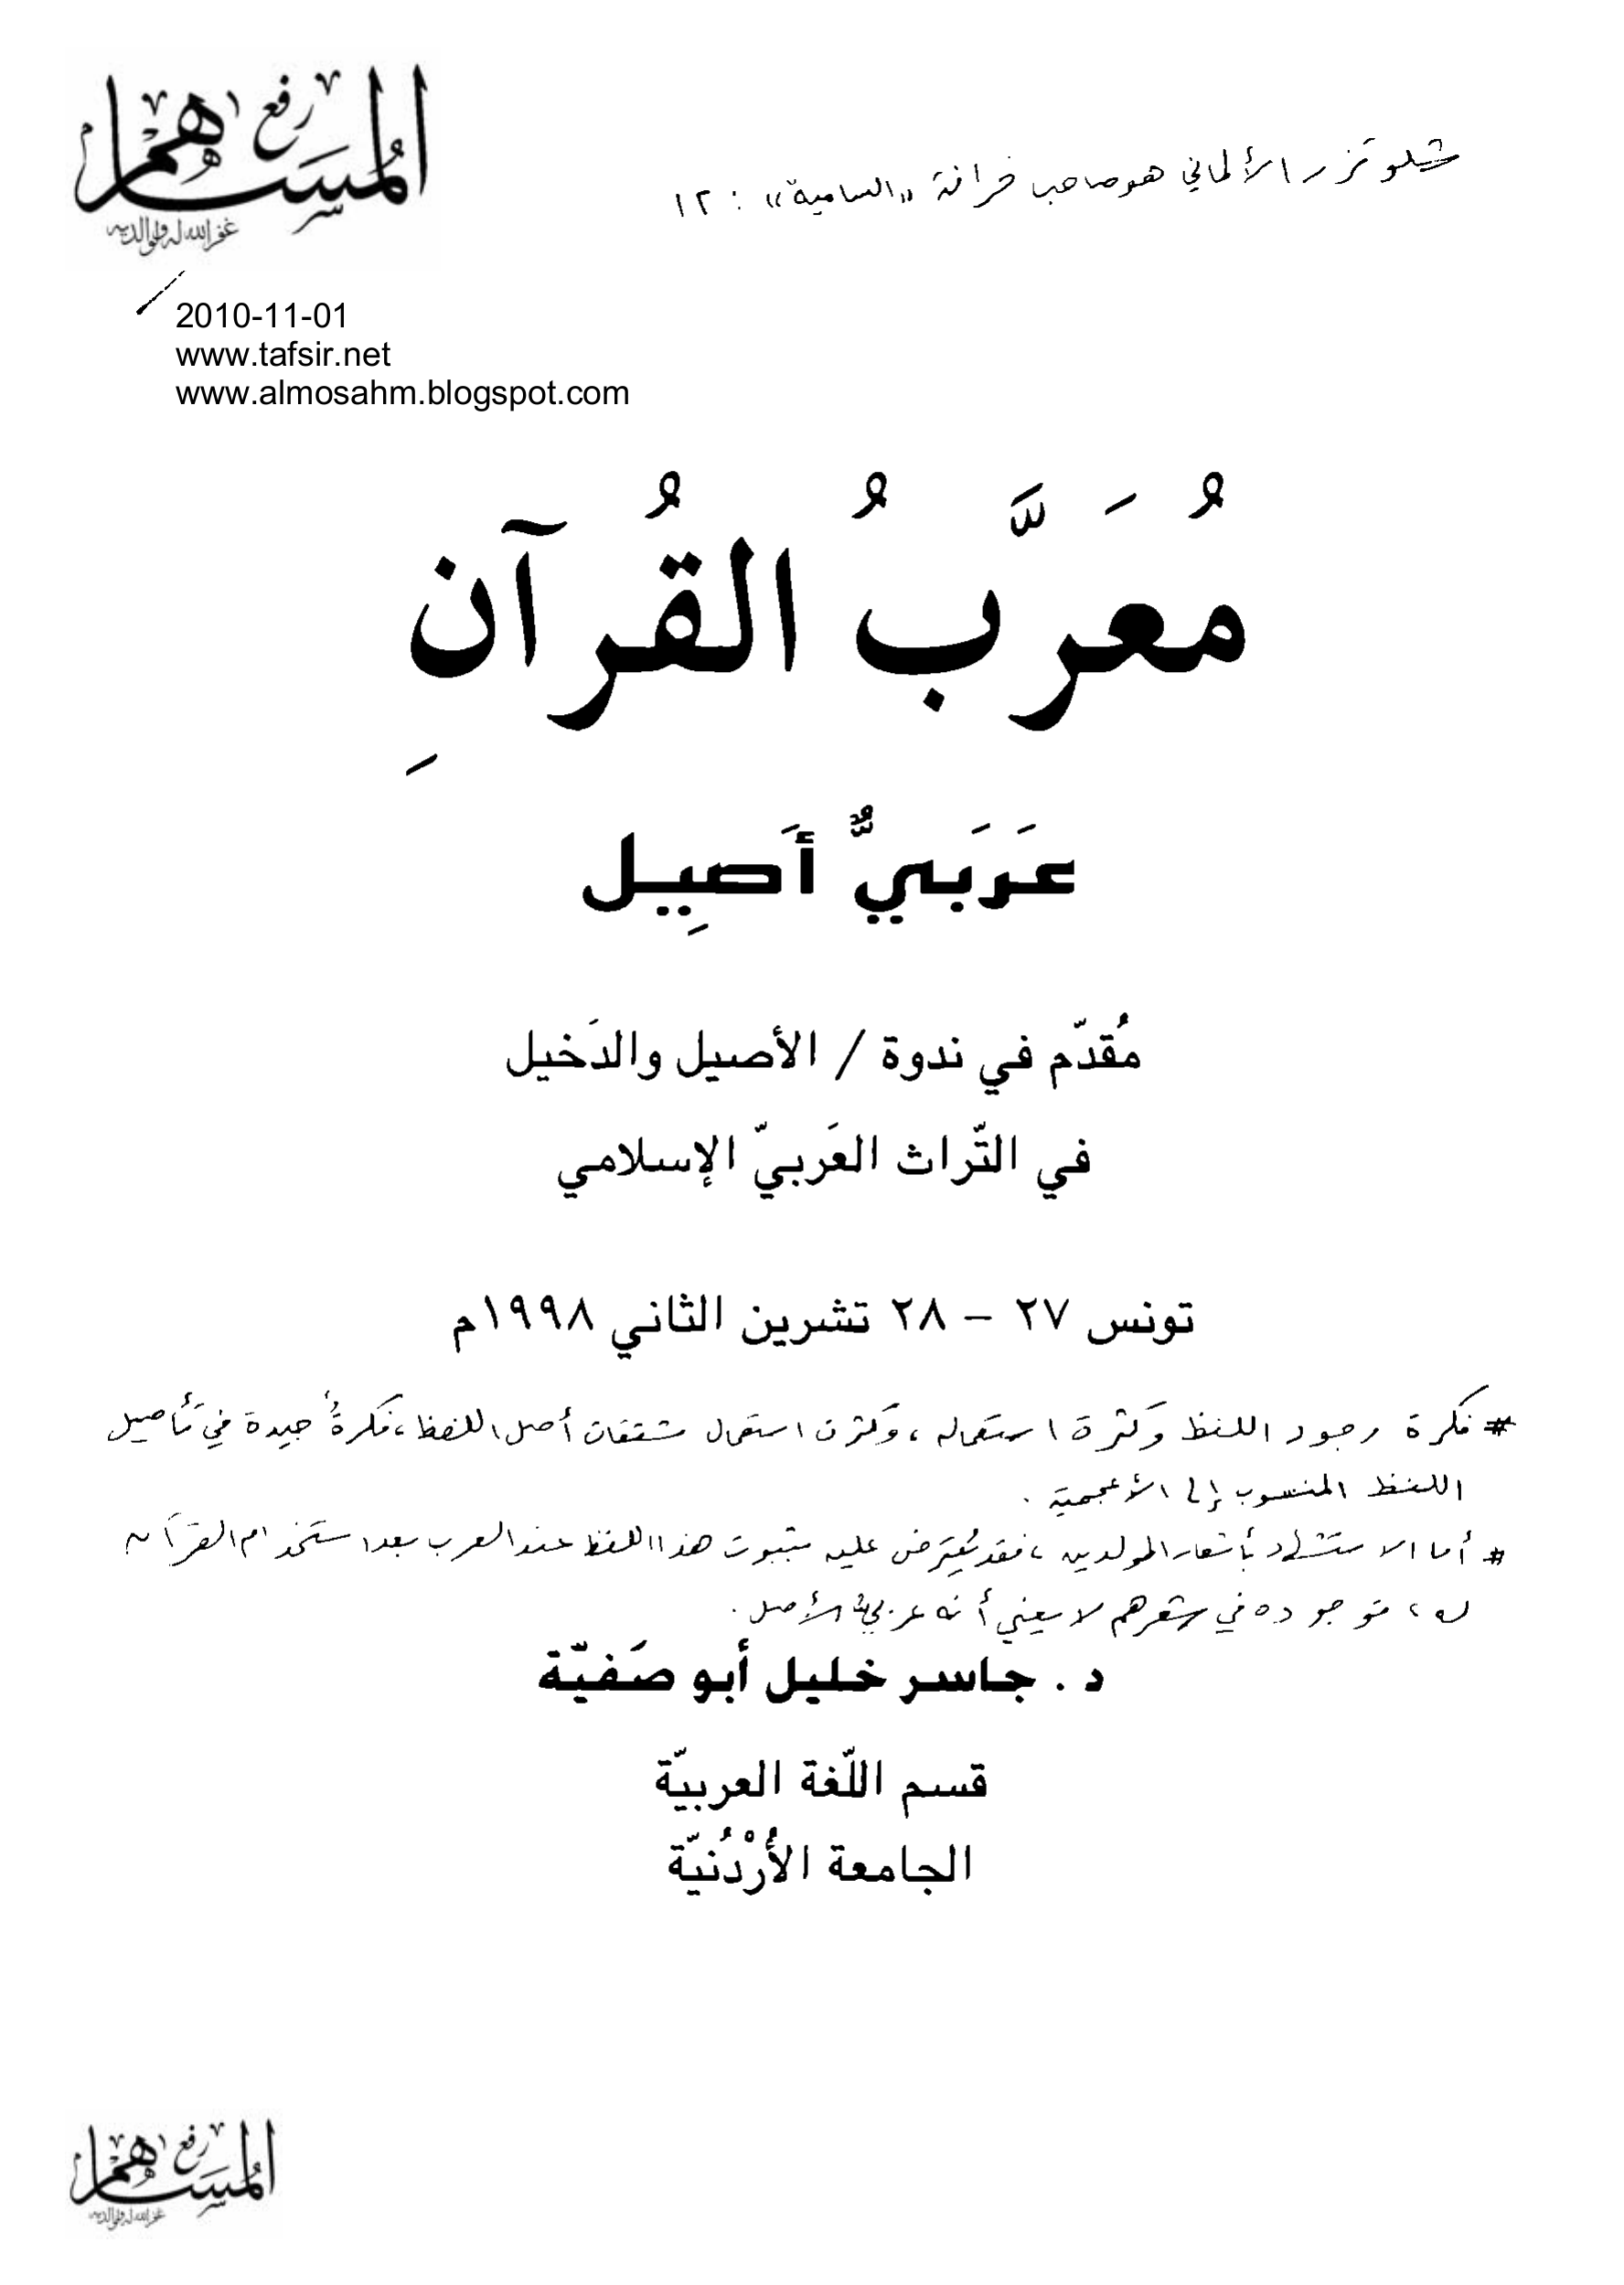 رفع
المساهم
غفر الله له ولوالديه
شلوتزر الألماني هو صاحب خرافة «السامية» : ١٢
2010-11-01
www.tafsir.net
www.almosahm.blogspot.com
مُعَرَّبُ القُرآنِ
عَرَبيٌّ أَصِيل
مُقدّم في ندوة / الأصيل والدَخيل
في التّراث العَربيّ الإسلامي
تونس ٢٧ – ٢٨ تشرين الثاني ١٩٩٨م
# فكرة وجود اللفظ وكثرة استعماله، وكثرة استعمال مشتقات أصل اللفظ، فكرةٌ جيدة في تأصيل
اللفظ المنسوب إلى الأعجمية .
# أما الاستشهاد بأشعار المولدين، فقد يُعترض عليه بثبوت هذا اللفظ عند العرب بعد استخدام القرآن
له، فوجوده في شعرهم لا يعني أنه عربيُّ الأصل .
د . جاسر خليل أبو صَفيّة
قسم اللّغة العربيّة
الجامعة الأُرْدُنيّة
رفع
المساهم
غفر الله له ولوالديه